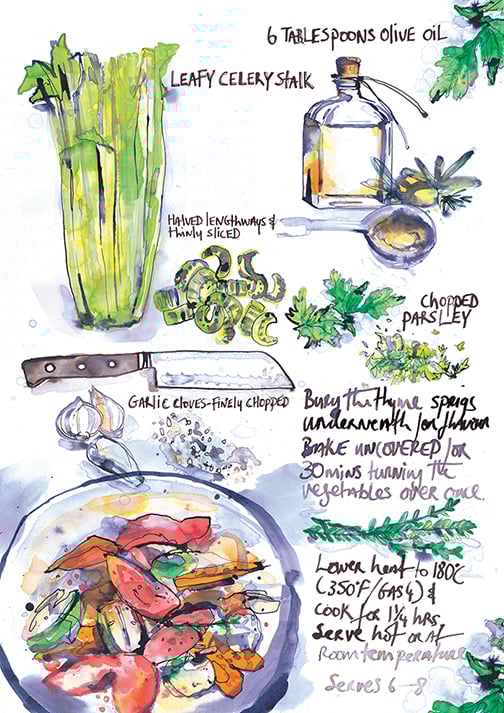 6 TABLESPOONS OLIVE OIL
LEAFY CELERY STALK
HALVED lENGTHWAYS &
thinly SLICED
CHOPPED
PARSLEY
GARLIC CLOVES-FINELY CHOPPED
Bury the thyme sprigs
underneath for flavour
BAKE UNCOVERED for
30 mins turning the
vegetables over once.
Lower heat to 180°C
(350°F/GAS 4) &
cook for 1¼ hrs.
Serve hot or at
Room temperature
Serves 6-8